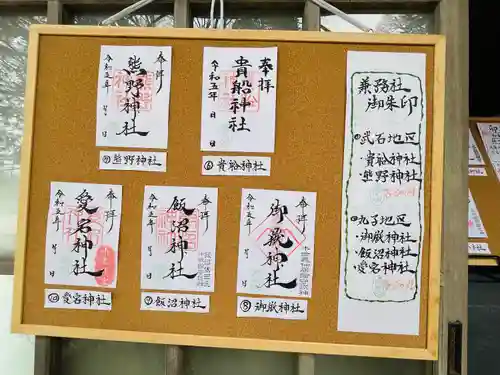 奉拝
熊野神社
令和五年 月 日
⑨熊野神社
奉拝
貴船神社
令和五年 月 日
⑥貴船神社
奉拝
愛宕神社
令和五年 月 日
⑩愛宕神社
奉拝
飯沼神社
令和五年 月 日
⑦飯沼神社
奉拝
御嶽神社
令和五年 月 日
⑧御嶽神社
兼務社
御朱印
武石地区
・貴船神社
・熊野神社
丸子地区
・御嶽神社
・飯沼神社
・愛宕神社